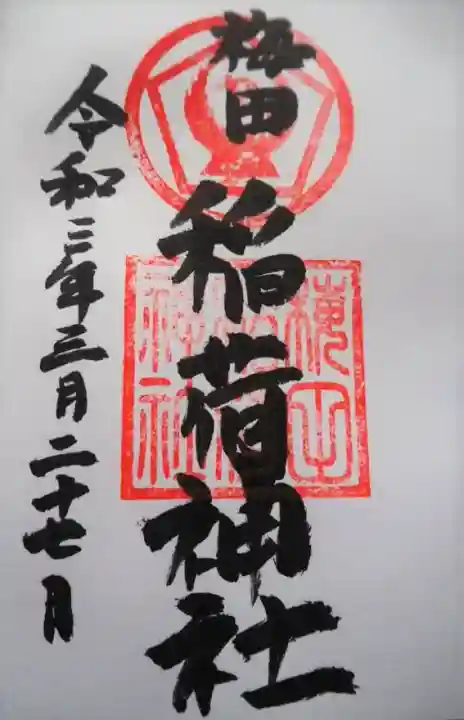 梅田
稲荷神社
令和三年三月二十七日
梅田
神社